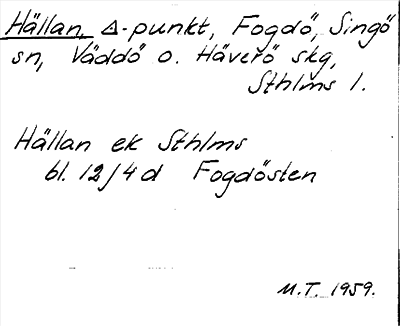 Hällan, Δ-punkt, Fogdö, Singö
sn, Väddö o. Häverö skg,
Sthlms l.
Hällan ek Sthlms
bl. 12/4d Fogdösten
M.T. 1959.